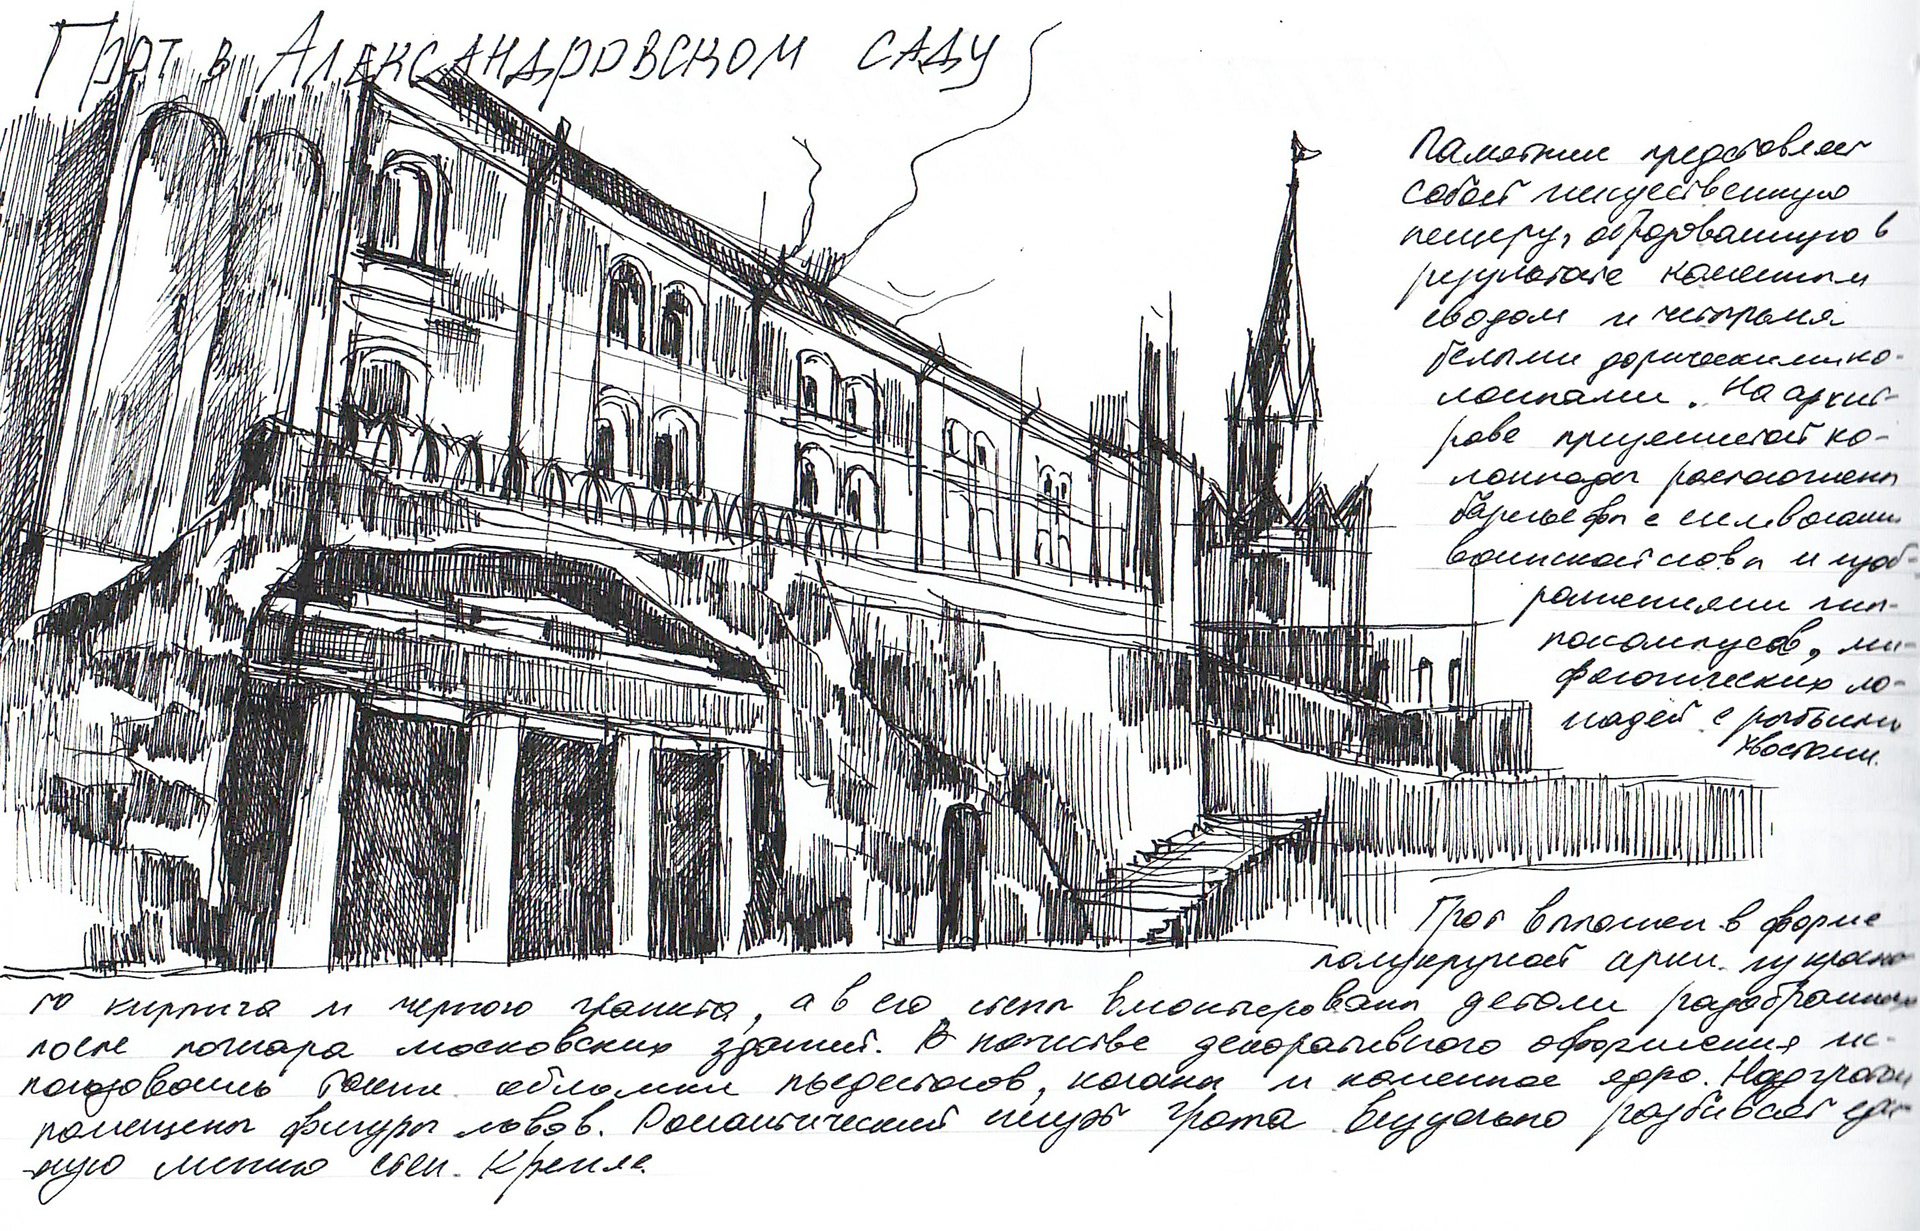 Грот в Александровском саду
Памятник представляет
собой искусственную
пещеру, образованную в
результате каменным
сводом и четырьмя
белыми дорическими ко-
лоннами. На архит-
раве приземистой ко-
лоннады расположены
барельефы с символами
воинской славы и изоб-
ражениями гип-
покампусов, ми-
фологических ло-
шадей с рыбьими
хвостами.
Грот выложен в форме
полукруглой арки из красно-
го кирпича и черного гранита, а в его стены вмонтированы детали разобранных
после пожара московских зданий. В качестве декоративного оформления ис-
пользовались также обломки пьедесталов, колонн и каменное ядро. Над гротом
помещены фигуры львов. Романтический силуэт грота визуально разбивает еди-
ную линию стен Кремля.